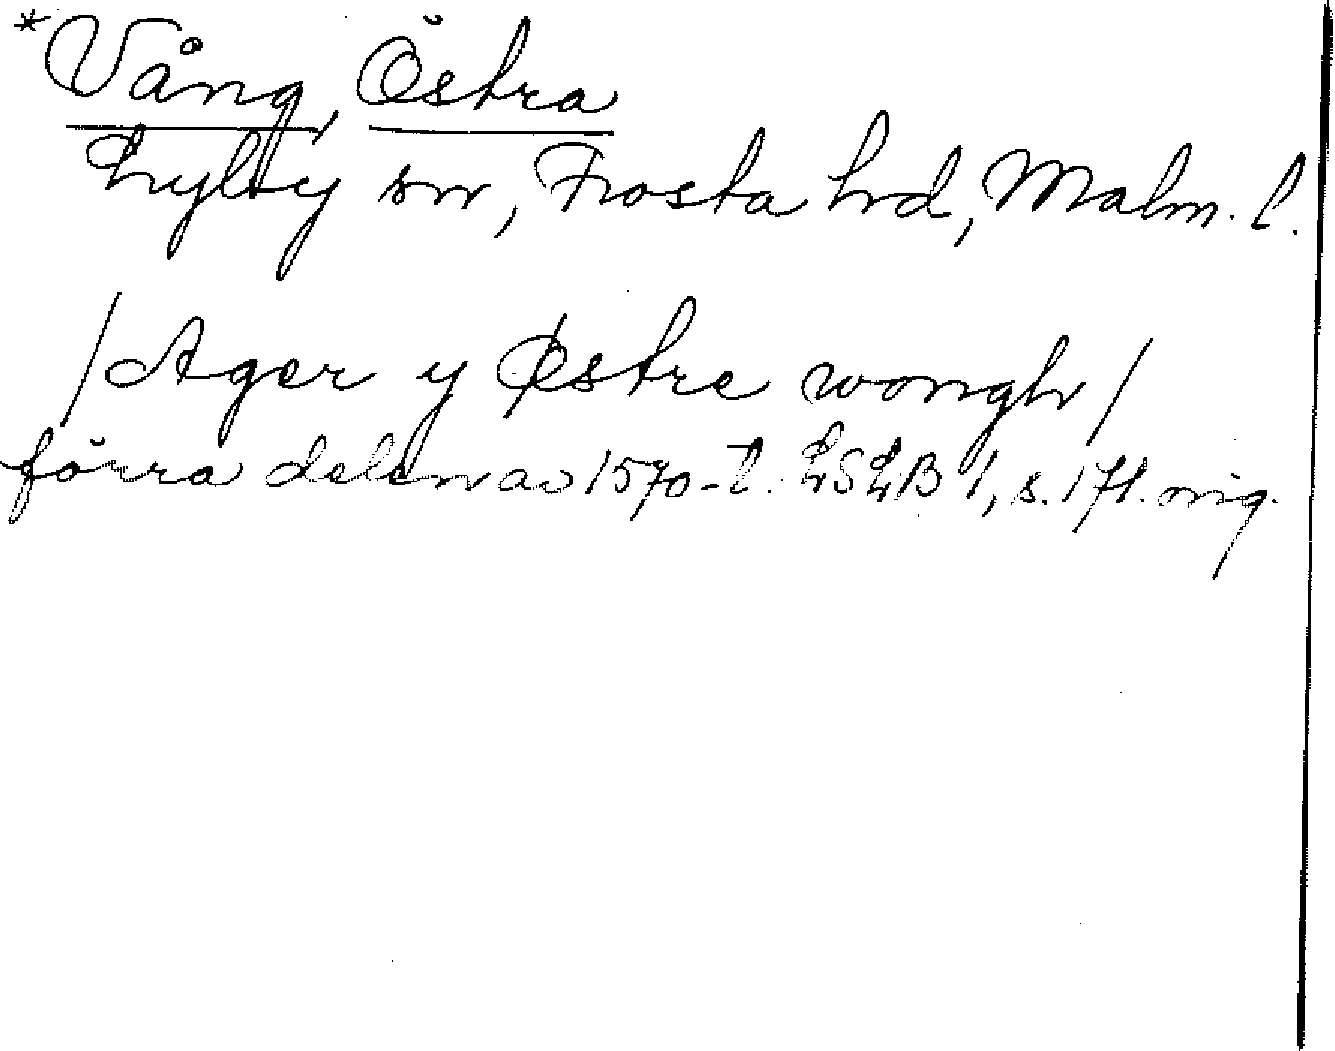 *Vång, Östra
Lyby sn, Frosta hd, Malm. l.
/Ager y Østre wongh/
förra delen av 1570-t. LSLB 1, s. 171. orig.